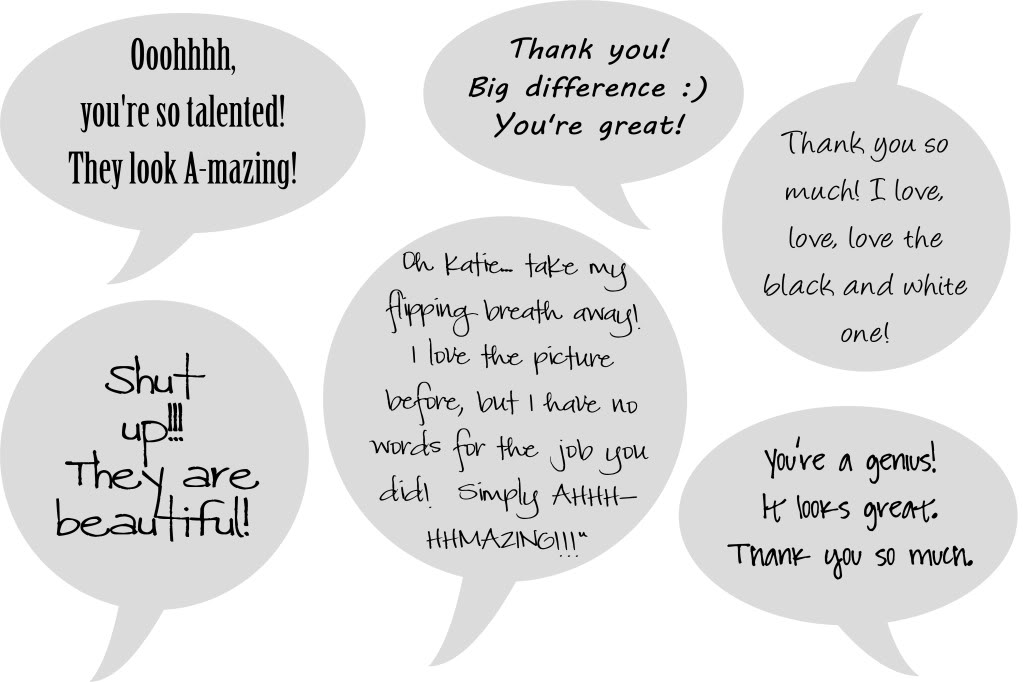 Ooohhhh,
you're so talented!
They look A-mazing!
Thank you!
Big difference :)
You're great!
Thank you so
much! I love,
love, love the
black and white
one!
Oh Katie... take my
flipping breath away!
I love the picture
before, but I have no
words for the job you
did! Simply AHHH-
HHMAZING!!!"
Shut
up!!!
They are
beautiful!
You're a genius!
It looks great.
Thank you so much.